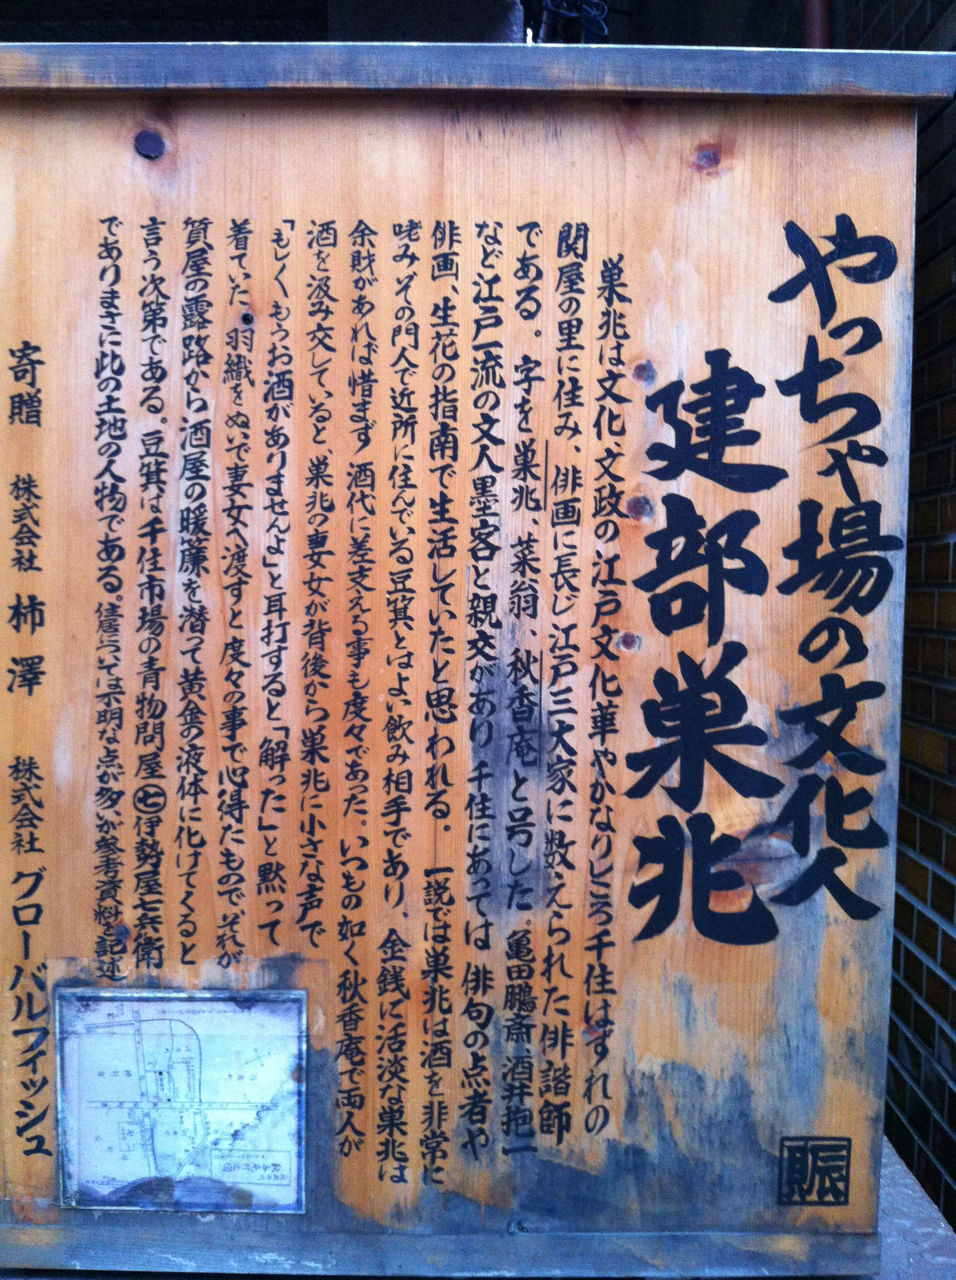 やっちゃ場の文化人
建部巣兆
巣兆は文化、文政の江戸文化華やかなりしころ千住はずれの
関屋の里に住み、俳画に長じ江戸三大家に数えられた俳諧師
である。字を巣兆、菜翁、秋香庵と号した。亀田鵬斎、酒井抱一
など江戸一流の文人墨客と親交があり千住にあっては俳句の点者や
俳画、生花の指南で生活していたと思われる。一説では巣兆は酒を非常に
嗜みその門人で近所に住んでいる豆箕とはよい飲み相手であり、金銭に活淡な巣兆は
余財があれば惜まず酒代に差支える事も度々であった。いつもの如く秋香庵で両人が
酒を汲み交していると、巣兆の妻女が背後から巣兆に小さな声で
「もしくもうお酒がありませんよ」と耳打すると「解った」と黙って
着ていた羽織をぬいで妻女へ渡すと度々の事で心得たもので、それが
質屋の露路から酒屋の暖簾を潜って黄金の液体に化けてくると
言う次第である。豆箕は千住市場の青物問屋㊆伊勢屋七兵衛
でありまさに此の土地の人物である。信憑については不明な点が多いが参考資料を記述
寄贈 株式会社 柿澤 株式会社 グローバルフィッシュ
賑